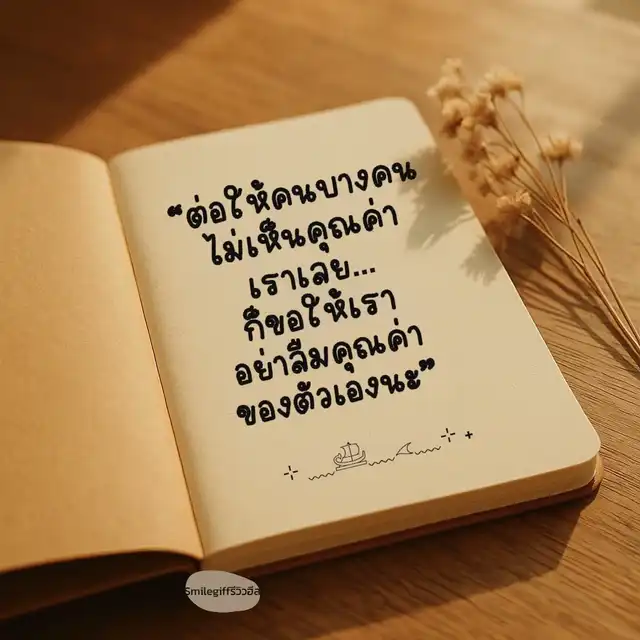 “ต่อให้คนบางคน
ไม่เห็นคุณค่า
เราเลย...
ก็ขอให้เรา
อย่าลืมคุณค่า
ของตัวเองนะ”
Smilegiffรีวิวฮีล